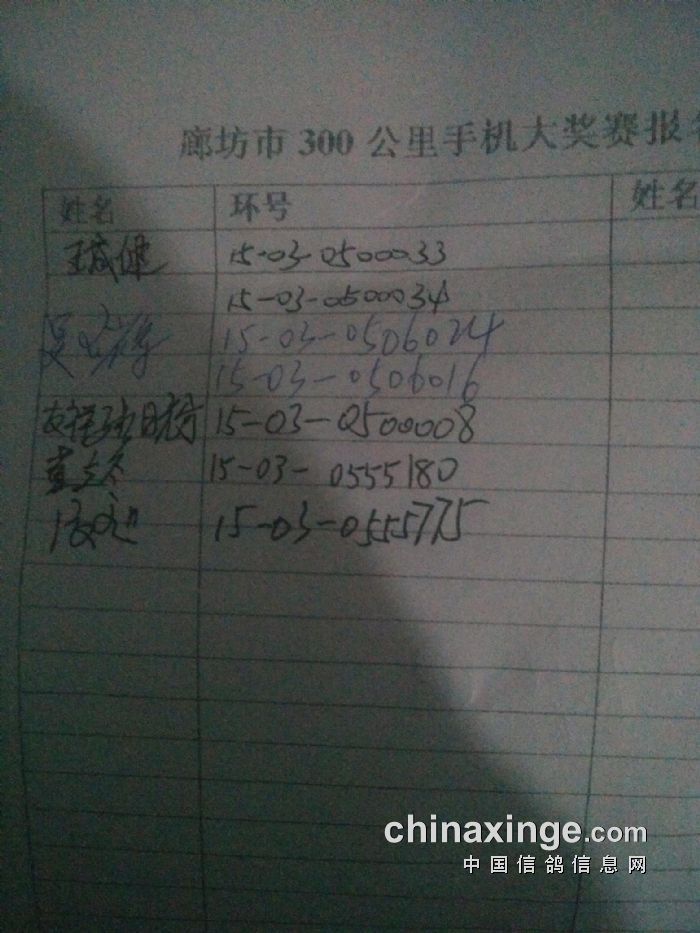 廊坊市 300 公里手机大奖赛报
姓名 环号 姓名
15-03-0500033
15-03-0500034
15-03-0506024
15-03-0506016
15-03-0500008
15-03-0555180
15-03-0555775
chinaxinge.com
中国信鸽信息网